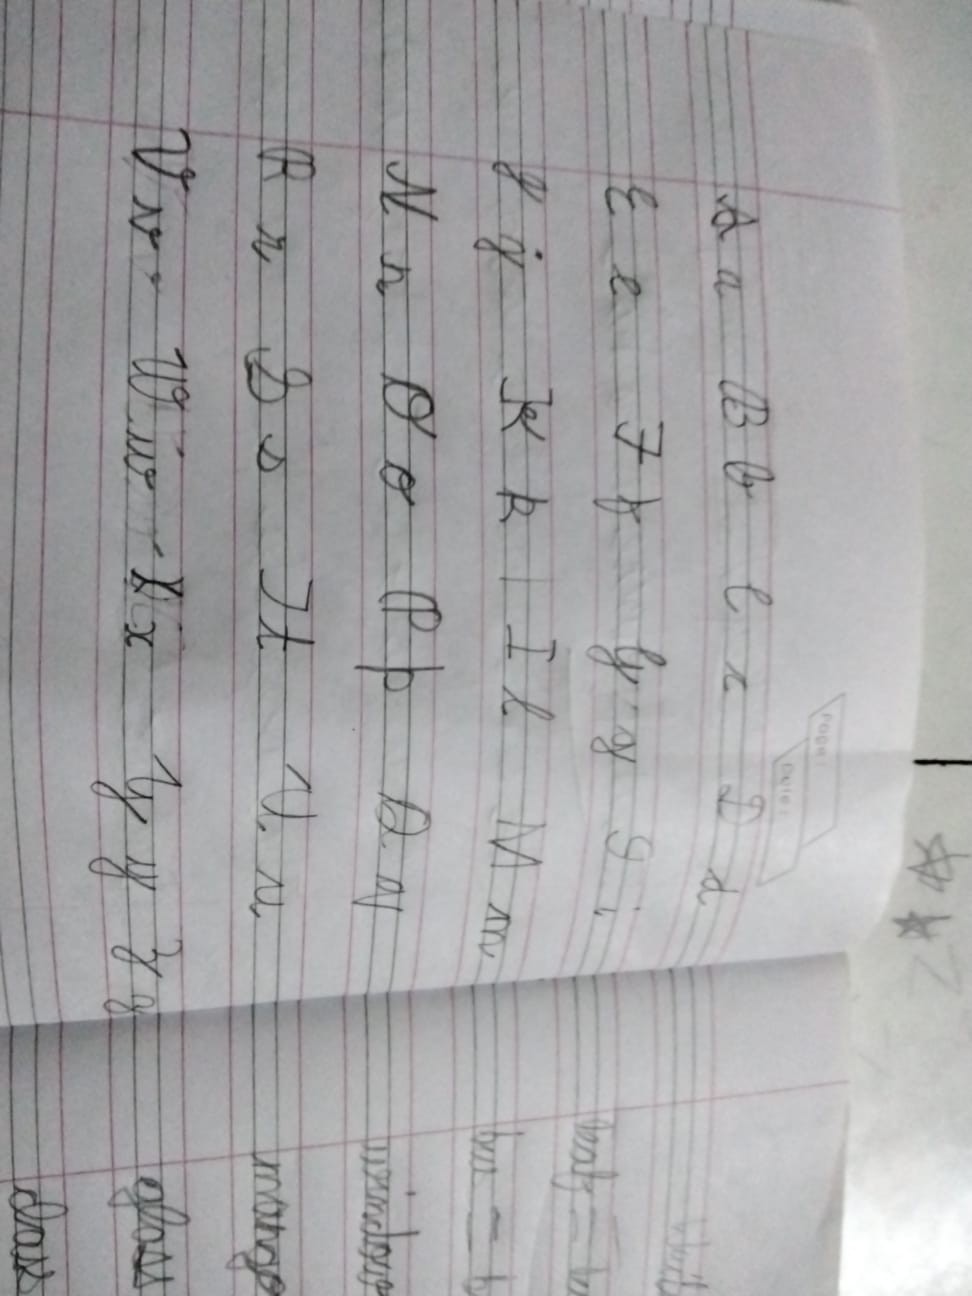 Page:
Date:
A a B b C c D d
E e F f G g I i
J j K k I l M m
N n O o P p Q q
R r S s T t U u
V v W w X x Y y Z z
leaf =
bus =
window
mango
glass
class